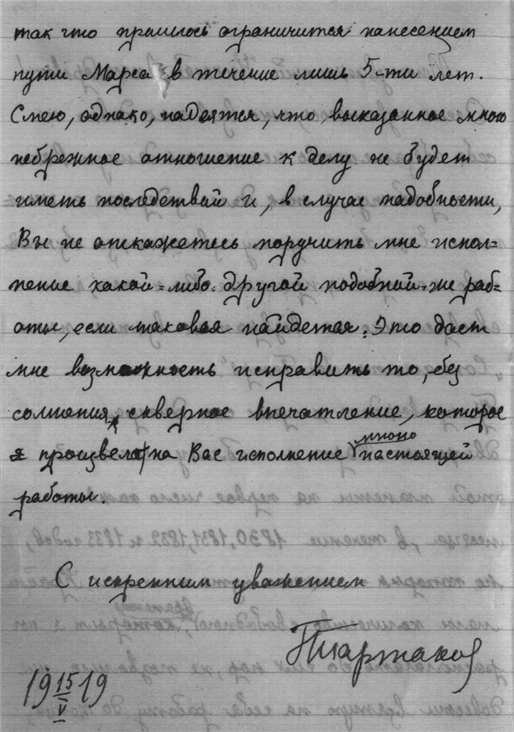 так что пришлось ограничится нанесением
пути Марса в течение лишь 5-ти лет.
Смею, однако, надеятся, что высказанное мною
небрежное отношение к делу не будет
иметь последствий и, в случае надобности,
Вы не откажетесь поручить мне испол-
нение какой-либо другой подобной-же раб-
оты, если таковая найдется. Это даст
мне возможность исправить то, без
сомнения, скверное впечатление, которое
произвело на Вас исполнение мною настоящей
работы.
С искренним уважением
19 15/V 19